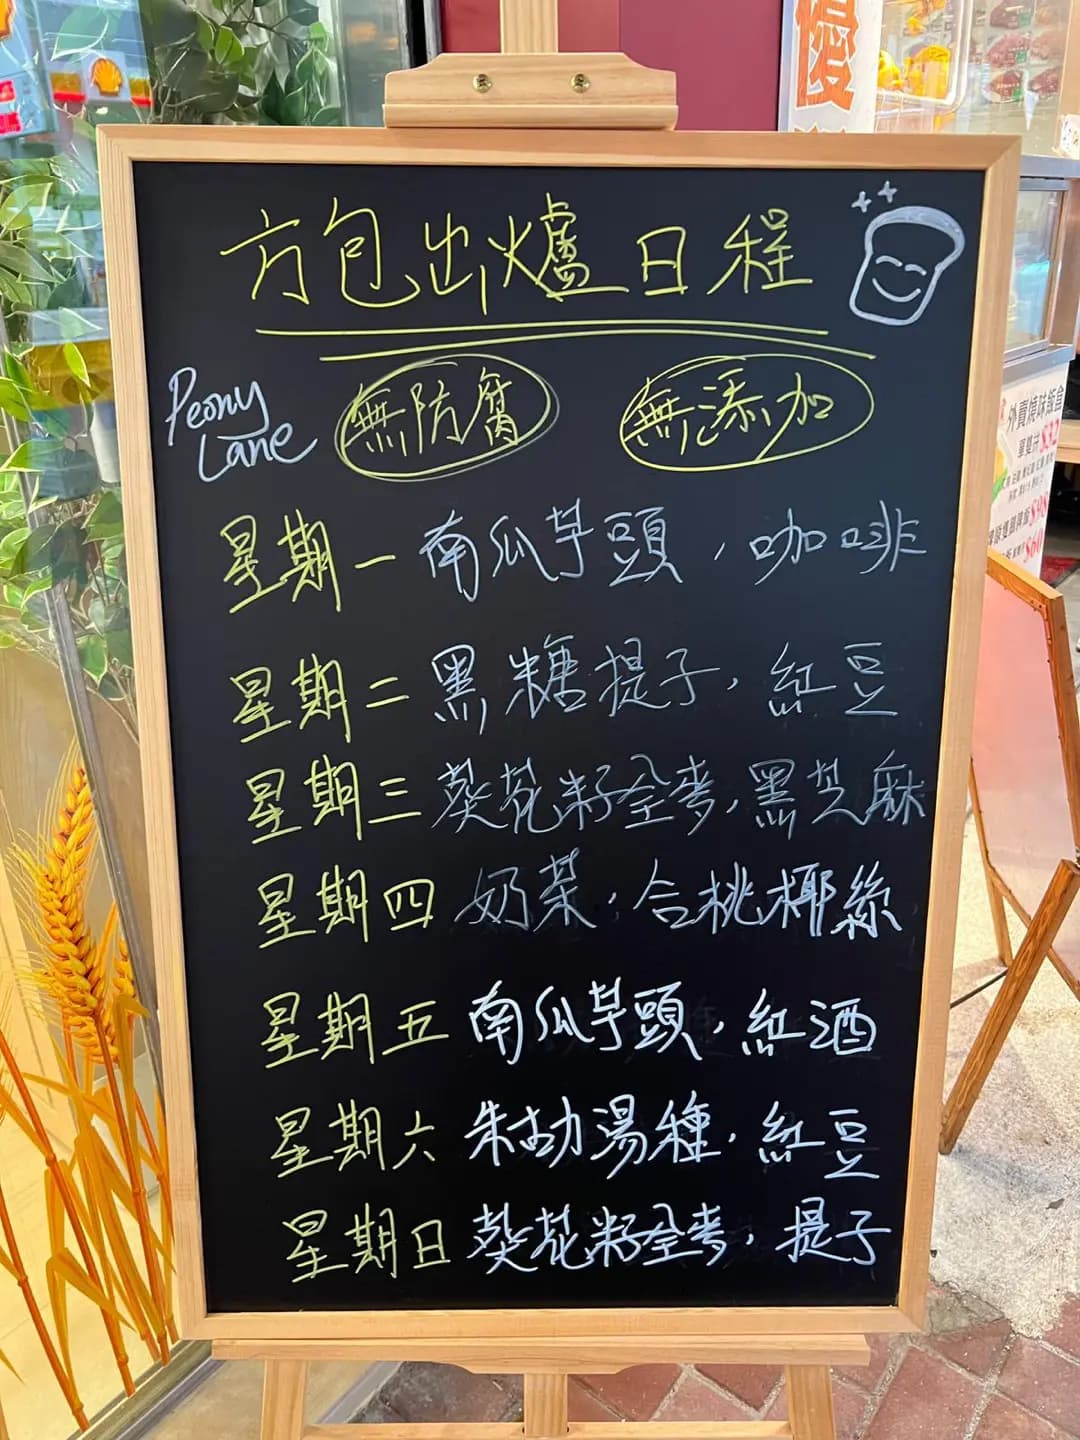 方包出爐日程
Peony Lane
無防腐
無添加
星期一 南瓜芋頭，咖啡
星期二 黑糖提子，紅豆
星期三 葵花籽全麥，黑芝麻
星期四 奶茶，合桃椰絲
星期五 南瓜芋頭，紅酒
星期六 朱古力湯種，紅豆
星期日 葵花籽全麥，提子
優
外賣燒味飯盒
$32
$98
$60